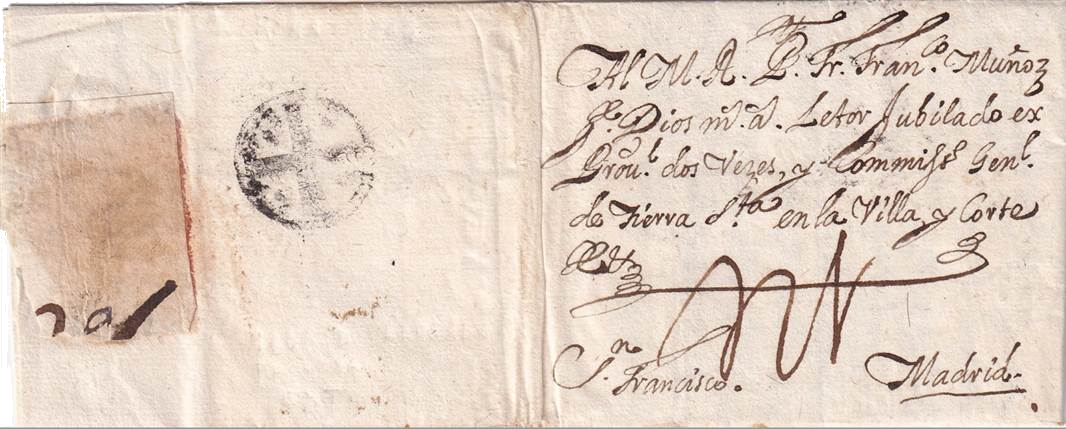 Al M. R. P. Fr. Franco. Muñoz
ge. Dios m.s a.s Letor Jubilado ex
Proul. dos Vezes, y Commisso. Genl.
de Tierra Sta en la Villa y Corte
Sn. Francisco. Madrid.